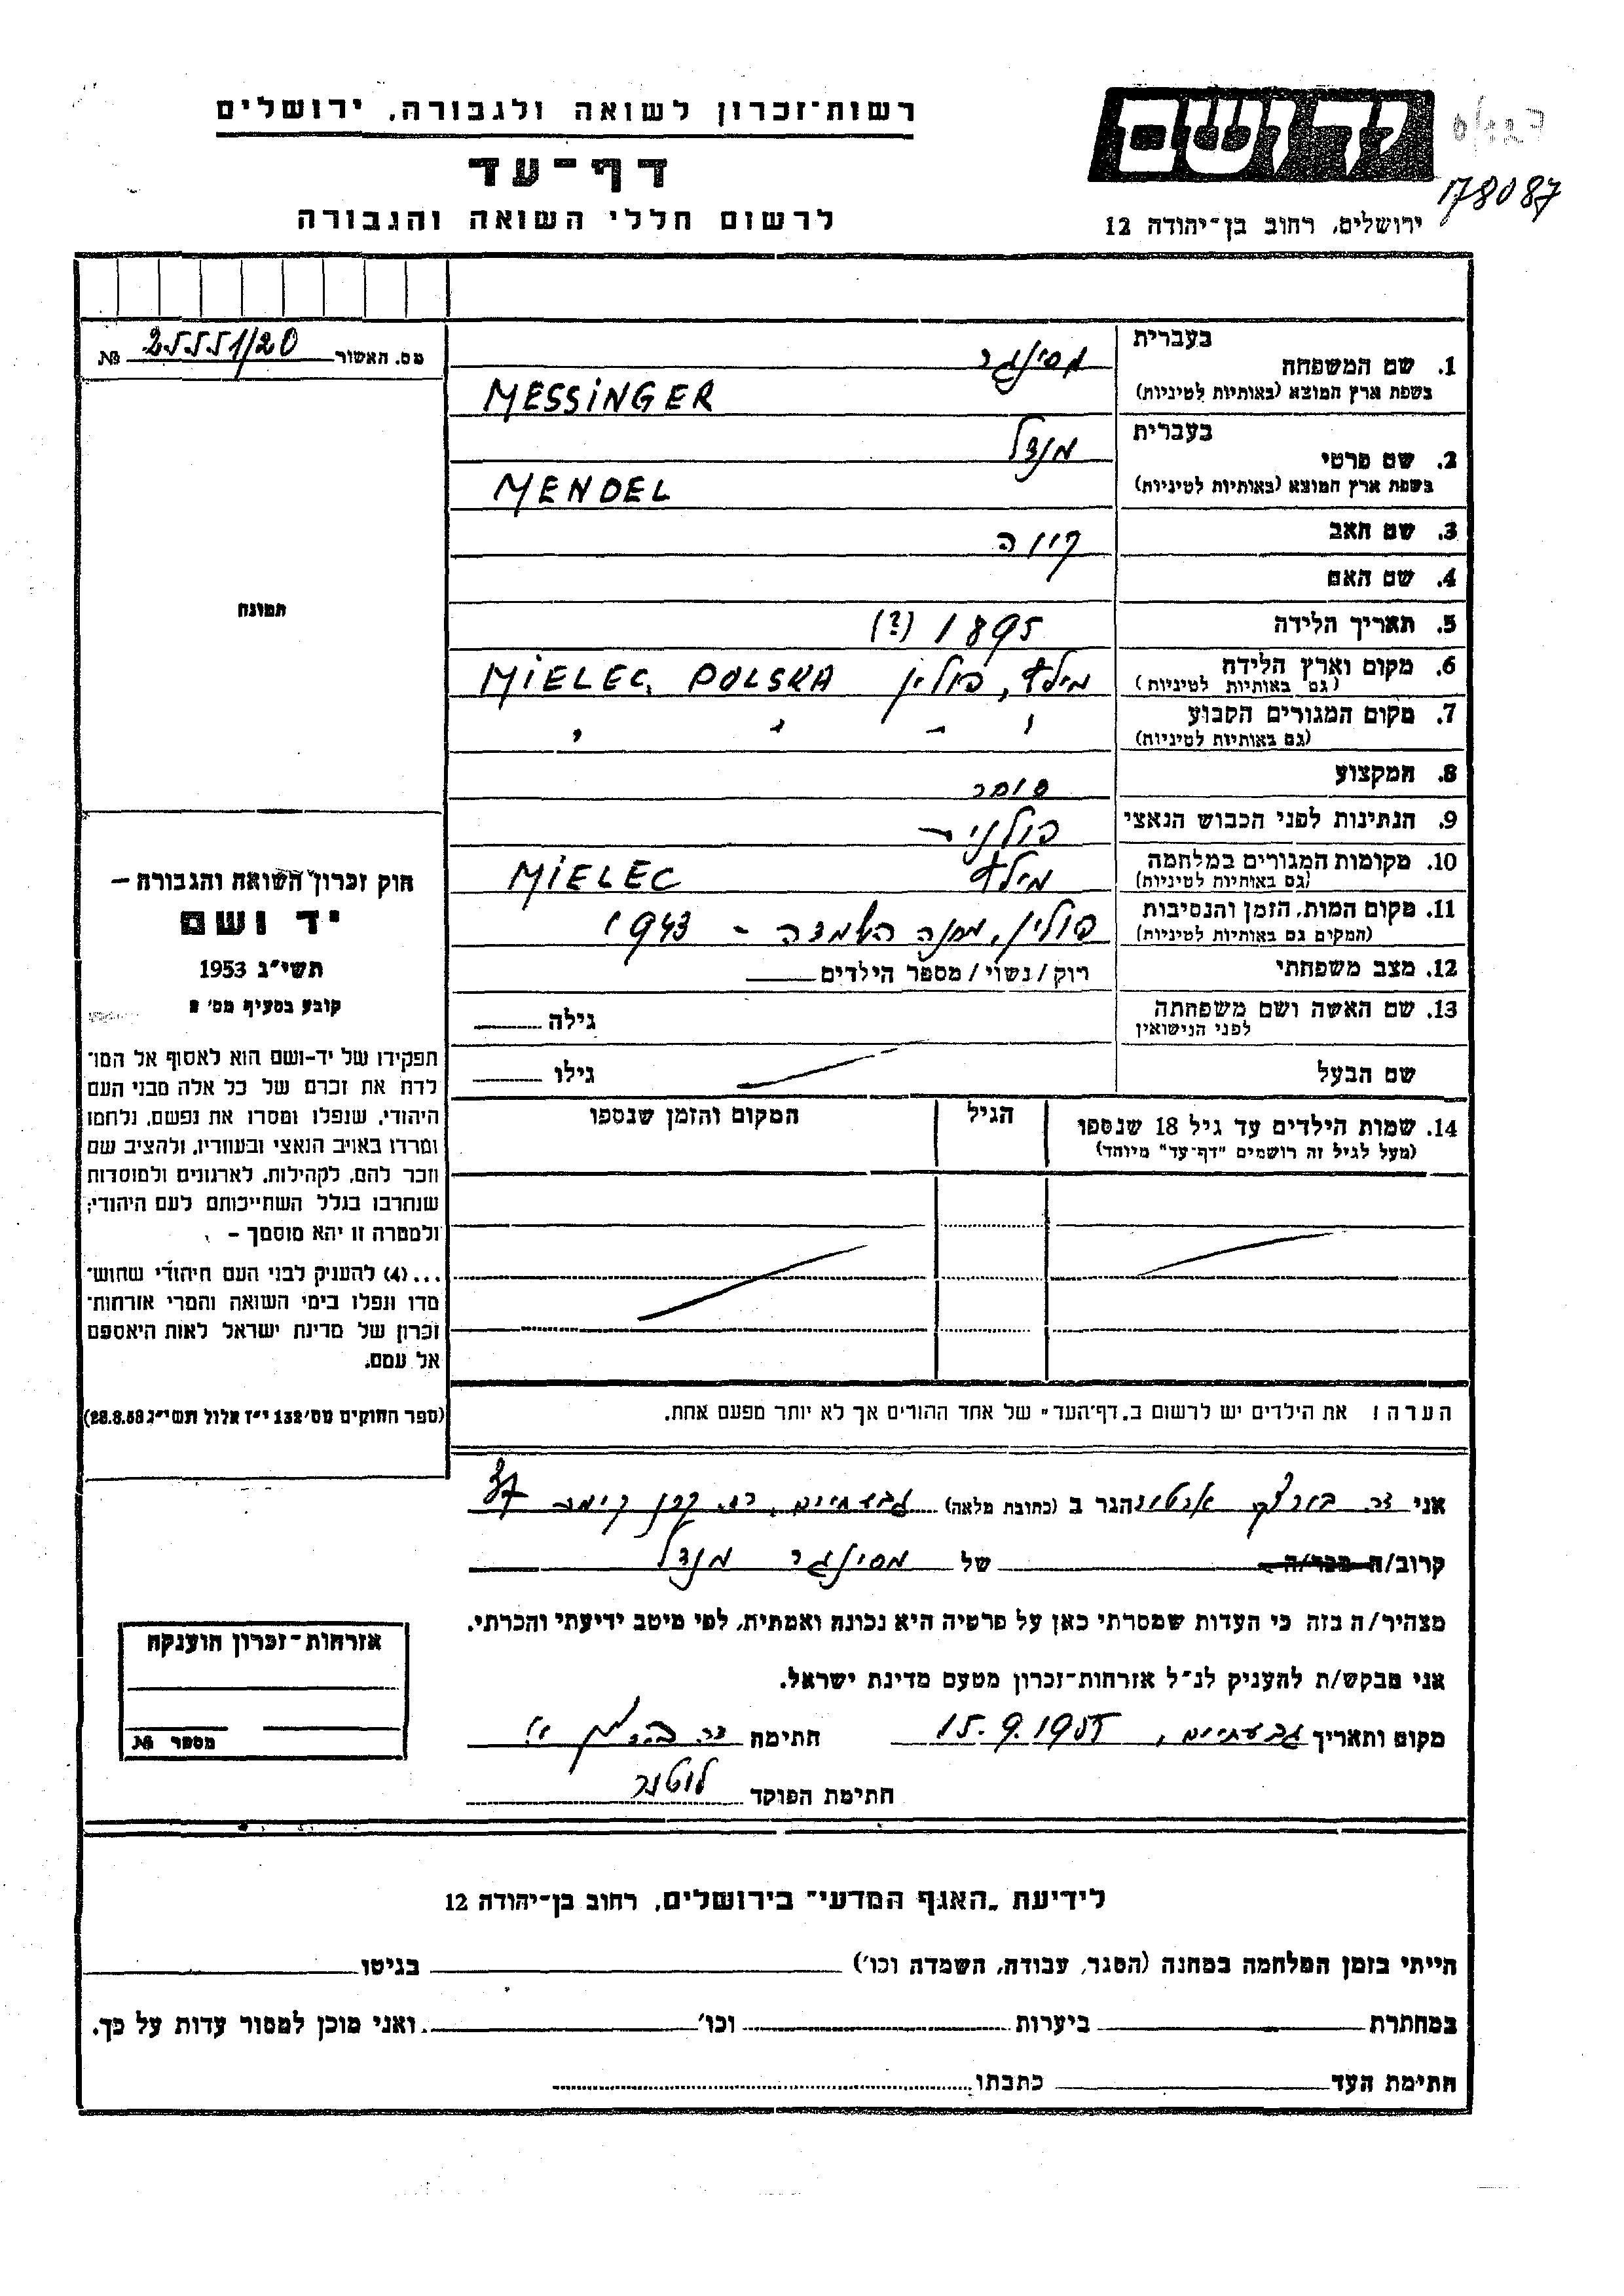 רשות־זכרון לשואה ולגבורה, ירושלים
דף־עד
לרשום חללי השואה והגבורה
יד ושם
178087
ירושלים, רחוב בן־יהודה 12
מס. האשור 25551/20 №
1. שם המשפחה
בעברית מסינגר
בשפת ארץ המוצא (באותיות לטיניות) MESSINGER
2. שם פרטי
בעברית מנדל
בשפת ארץ המוצא (באותיות לטיניות) MENDEL
3. שם האב
4. שם האם
5. תאריך הלידה 1895 (?)
6. מקום וארץ הלידה מילץ, פולין MIELEC, POLSKA
(גם באותיות לטיניות)
7. מקום המגורים הקבוע " " " "
(גם באותיות לטיניות)
8. המקצוע סוחר
9. הנתינות לפני הכבוש הנאצי פולני –
10. מקומות המגורים במלחמה מילץ MIELEC
(גם באותיות לטיניות)
11. מקום המות, הזמן והנסיבות פולין, מחנה השמדה – 1943
(המקום גם באותיות לטיניות)
12. מצב משפחתי רוק/נשוי/מספר הילדים
13. שם האשה ושם משפחתה גילה
לפני הנישואין
שם הבעל גילו
14. שמות הילדים עד גיל 18 שנספו הגיל המקום והזמן שנספו
(מעל לגיל זה רושמים "דף־עד" מיוחד)
הערה: את הילדים יש לרשום ב„דף־העד" של אחד ההורים אך לא יותר מפעם אחת.
תמונה
חוק זכרון השואה והגבורה –
יד ושם
תשי"ג 1953
קובע בסעיף מס' 2
תפקידו של יד־ושם הוא לאסוף אל המו־
לדת את זכרם של כל אלה מבני העם
היהודי, שנפלו ומסרו את נפשם, נלחמו
ומרדו באויב הנאצי ובעוזריו, ולהציב שם
וזכר להם, לקהילות, לארגונים ולמוסדות
שנחרבו בגלל השתייכותם לעם היהודי;
ולמטרה זו יהא מוסמך –
...(4) להעניק לבני העם היהודי שהוש־
מדו ונפלו בימי השואה והמרי אזרחות־
זכרון של מדינת ישראל לאות היאספם
אל עמם.
(ספר החוקים מס' 132 י"ז אלול תשי"ג 28.8.53)
אני דר. אנטון הגר ב (כתובת מלאה) גבעתיים, רח. קרן קימת 37
קרוב/ה מכר/ה של מסינגר מנדל
מצהיר/ה בזה כי העדות שמסרתי כאן על פרטיה היא נכונה ואמתית, לפי מיטב ידיעתי והכרתי.
אני מבקש/ת להעניק לנ"ל אזרחות־זכרון מטעם מדינת ישראל.
מקום ותאריך גבעתיים, 15.9.1955 חתימה דר.
חתימת הפוקד
אזרחות־זכרון הוענקה
מספר №
לידיעת „האגף המדעי" בירושלים, רחוב בן־יהודה 12
הייתי בזמן המלחמה במחנה (הסגר, עבודה, השמדה וכו') בגיטו
במחתרת ביערות וכו' ואני מוכן למסור עדות על כך.
חתימת העד כתבתו